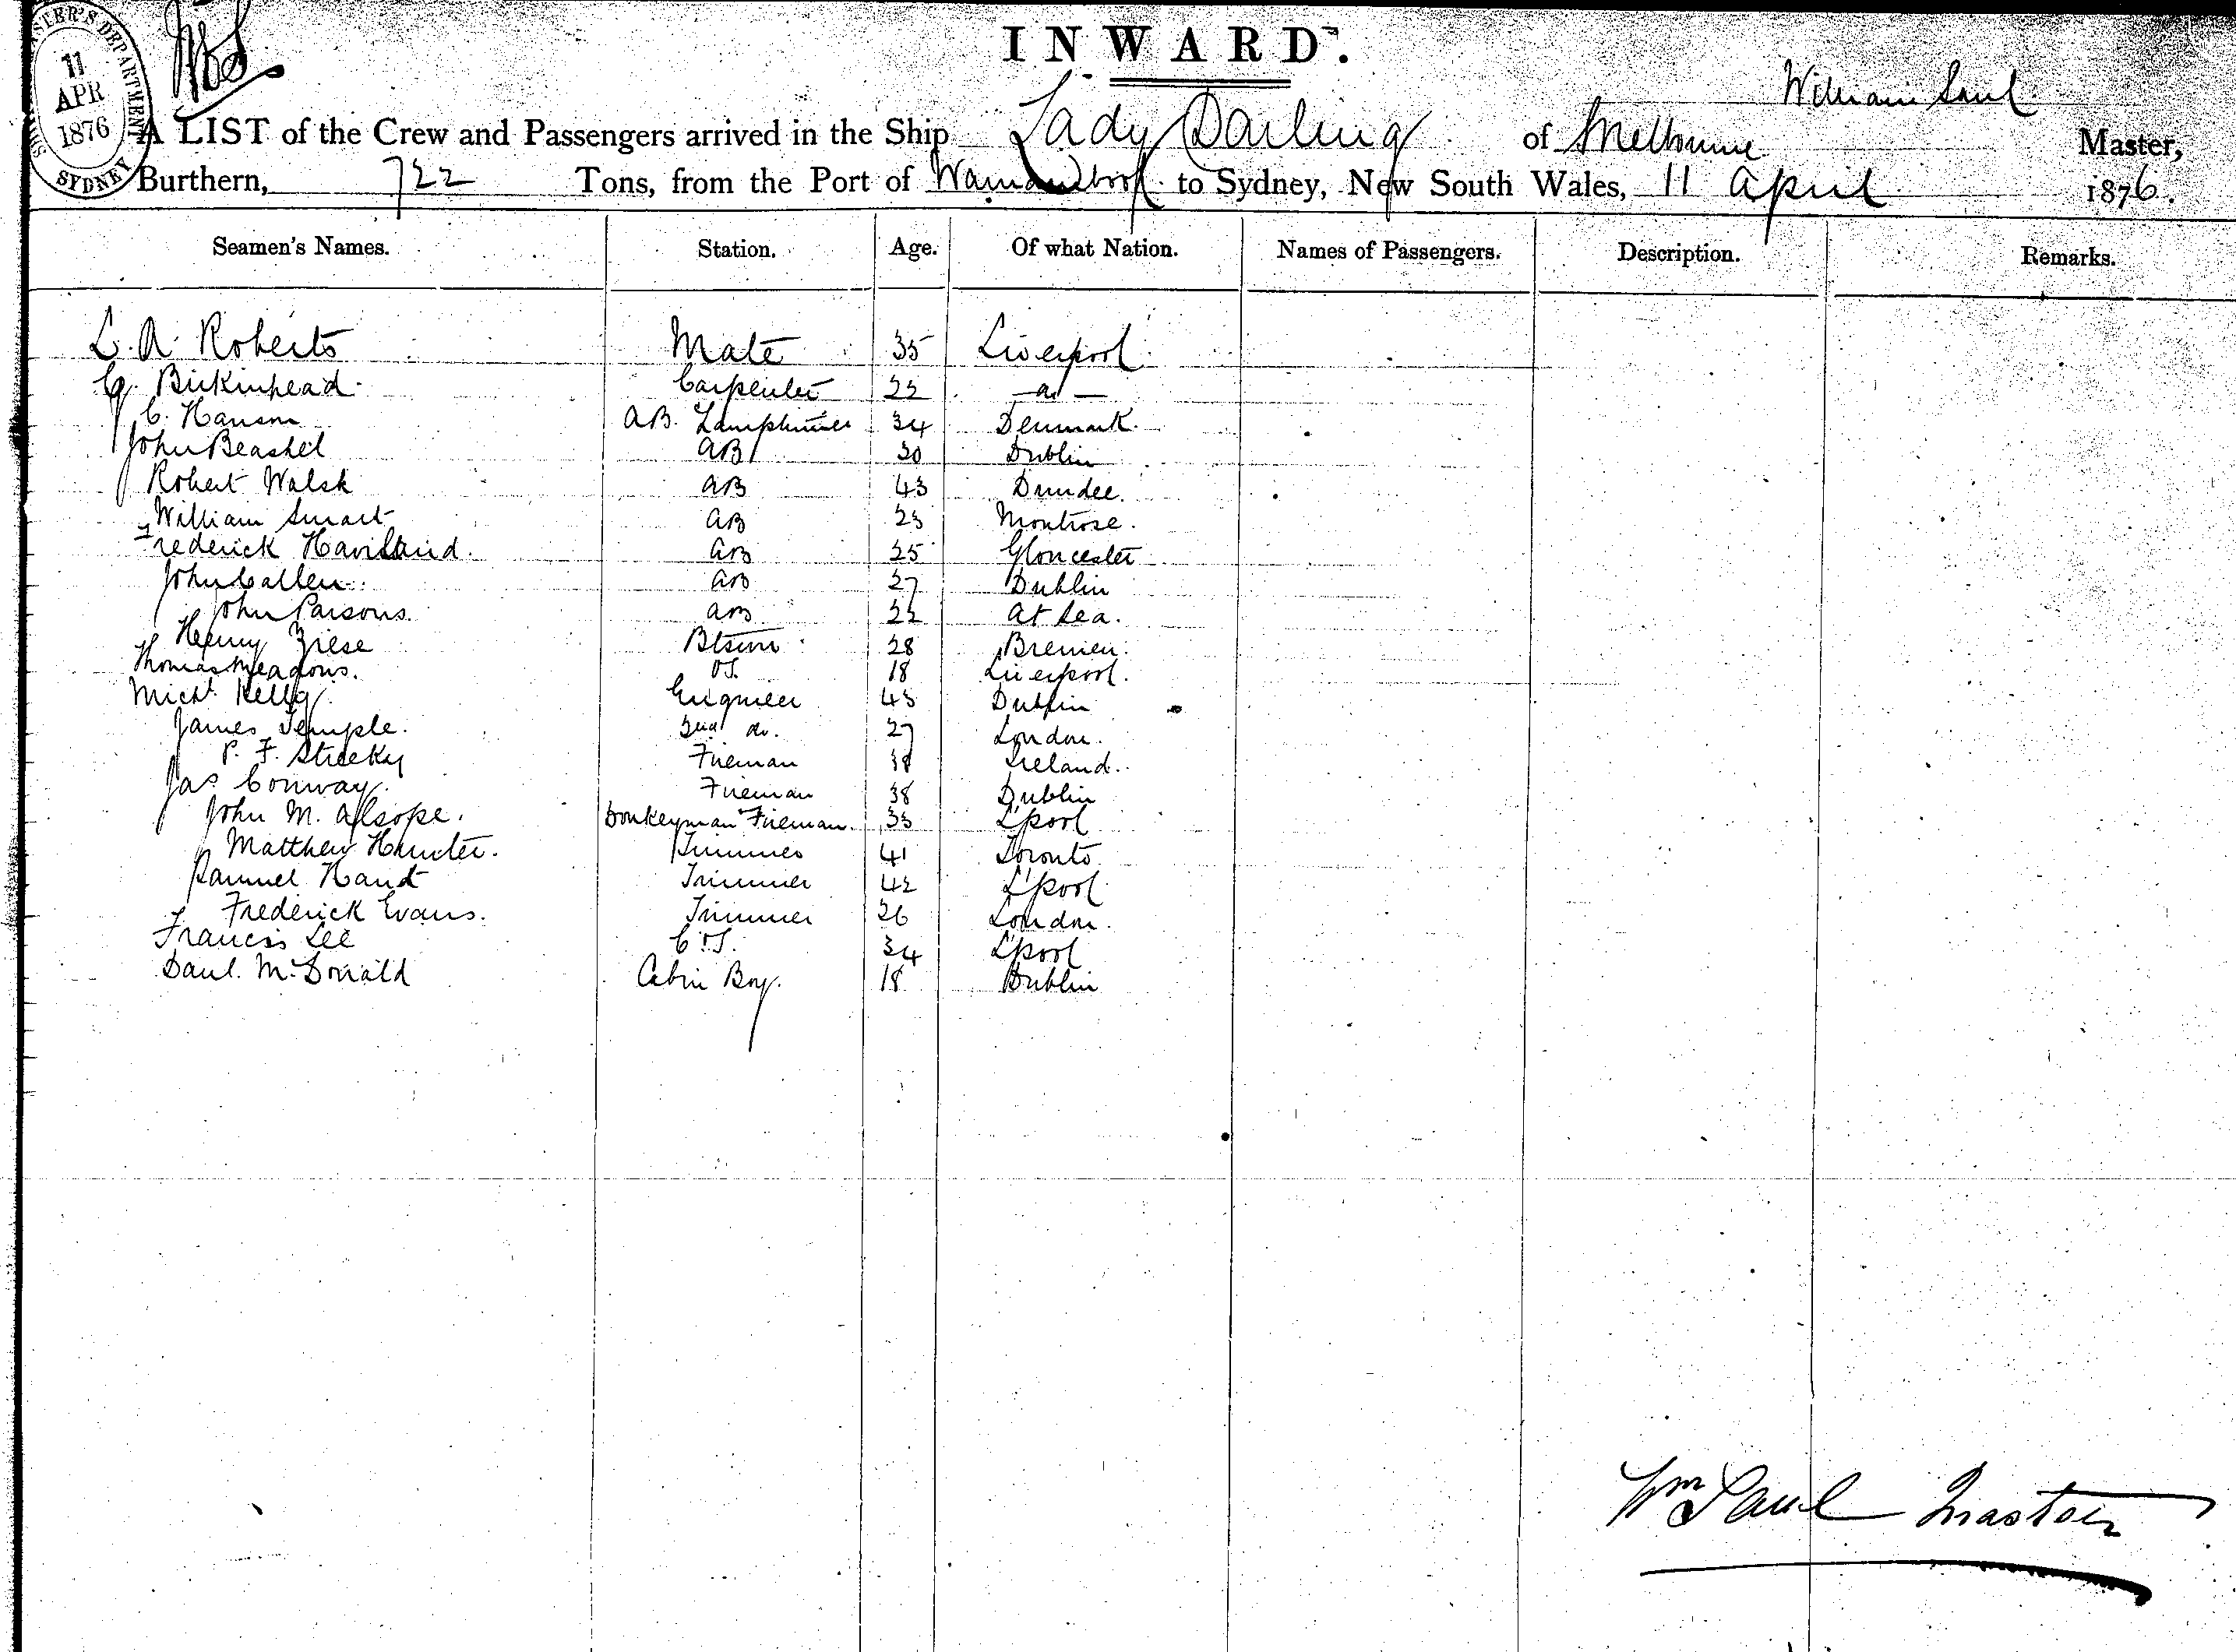 11
APR
1876
SYDNEY
INWARD.
William Saul
A LIST of the Crew and Passengers arrived in the Ship Lady Darling of Melbourne Master,
Burthern, 722 Tons, from the Port of to Sydney, New South Wales, 11 April 1876.
Seamen's Names. Station. Age. Of what Nation. Names of Passengers. Description. Remarks.
L. A. Roberts Mate 35 Liverpool
G. Birkinhead Carpenter 22
C. Hanson AB. Lamptrimer 34 Denmark.
John Beashel AB 30 Dublin
Robert Walsh AB 43 Dundee.
William Smart AB 23 Montrose.
Frederick Haviland. AB 25 Gloucester
John Callen AB 27 Dublin
John Parsons. AB 22 at Sea.
Henry Ziese Btswn 28 Bremen.
Thomas Meadows. OS. 18 Liverpool.
Michl. Kelly Engineer 43 Dublin
James Temple. 2nd do. 27 London.
P. F. Fireman 38 Ireland.
Jas Conway. Fireman 38 Dublin
John M. Alsope. Donkeyman Fireman. 33 L'pool
Matthew Hunter. Trimmer 41 Toronto
Samuel Hand Trimmer 42 L'pool
Frederick Evans. Trimmer 26 London.
Francis Lee C.S. 34 L'pool
Danl. McDonald Cabin Boy. 18 Dublin
Wm Saul Master